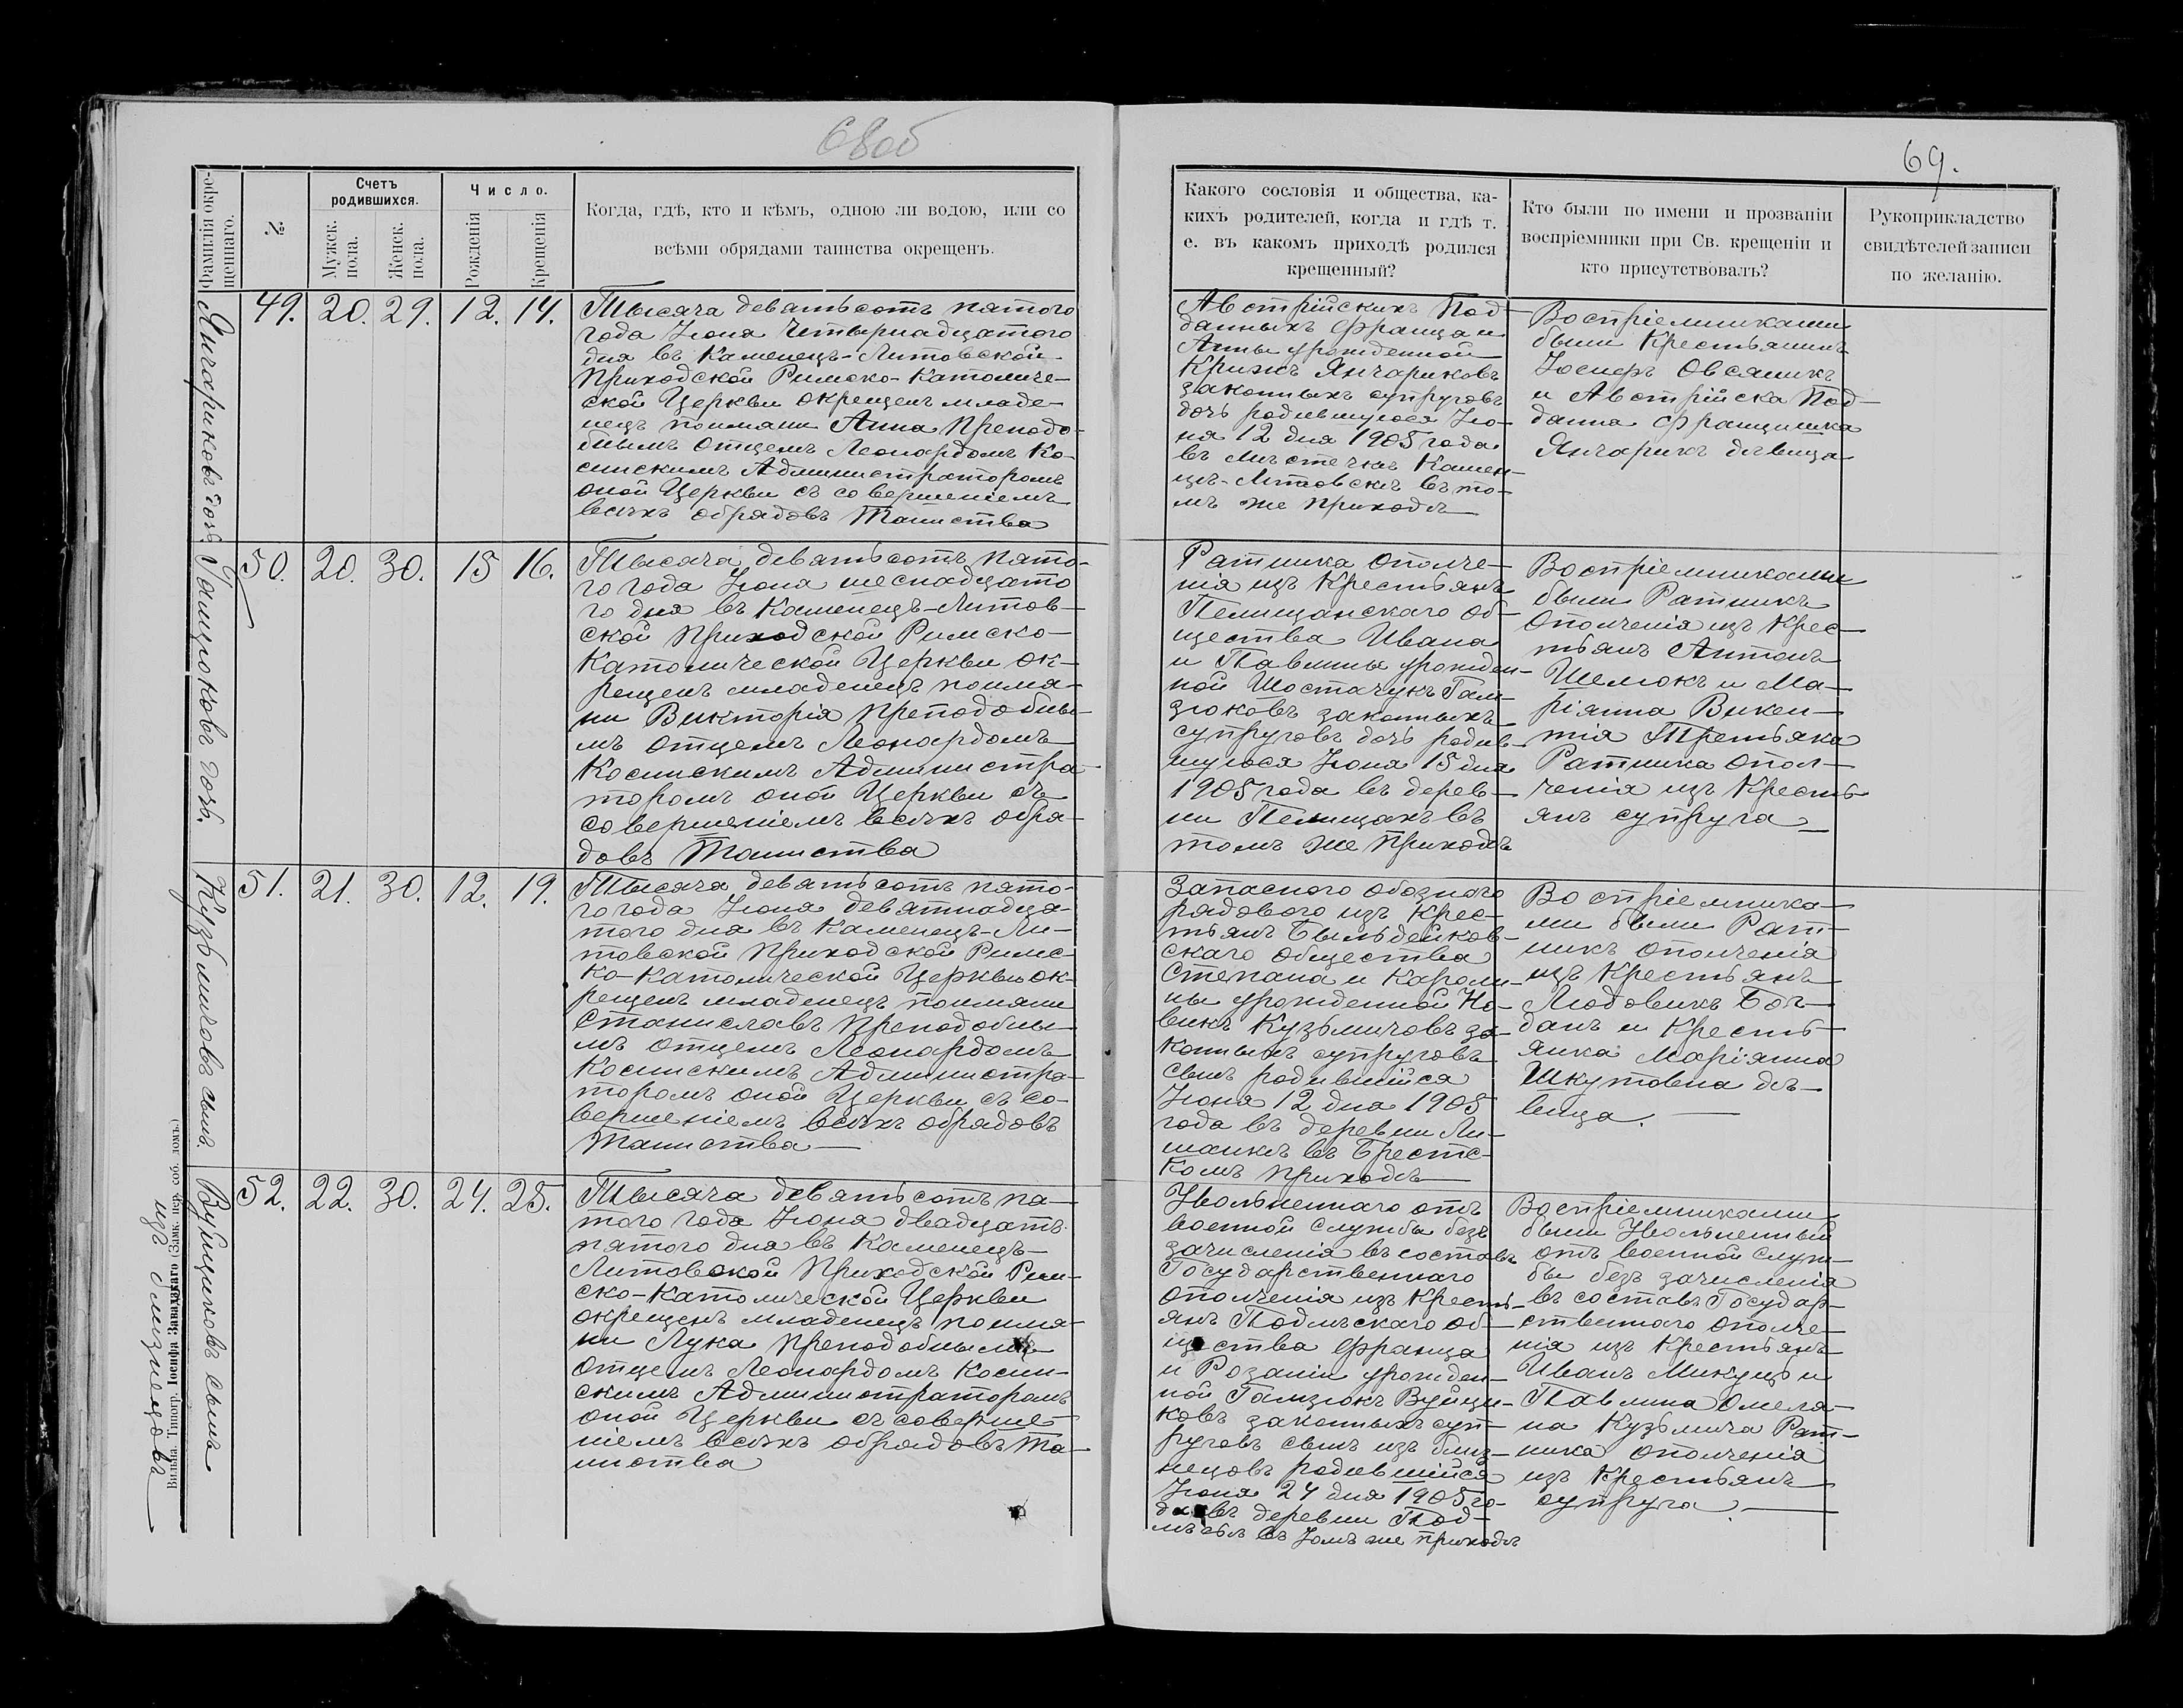 68об
69.
Фамилію окрещеннаго.
№
Счетъ родившихся.
Мужск. пола.
Женск. пола.
Число.
Рожденія
Крещенія
Когда, гдѣ, кто и кѣмъ, одною ли водою, или со
всѣми обрядами таинства окрещенъ.
Какого сословія и общества, ка-
кихъ родителей, когда и гдѣ т.
е. въ какомъ приходѣ родился
крещенный?
Кто были по имени и прозваніи
воспріемники при Св. крещеніи и
кто присутствовалъ?
Рукоприкладство
свидѣтелей записи
по желанію.
Янчариковъ дочь
49. 20. 29. 12. 14.
Тысяча девятьсотъ пятого
года Іюня четырнадцатого
дня въ Каменецъ-Литовской
Приходской Римско-Католиче-
ской Церкви окрещенъ младе-
нецъ поимяни Анна Преподо-
бнымъ Отцемъ Леонардомъ Ко-
синскимъ Администраторомъ
оной Церкви съ совершеніемъ
всѣхъ обрядовъ Таинства
Австрійскихъ Под-
данныхъ Франца и
Анны урожденной
Крижъ Янчариковъ
законныхъ супруговъ
дочь родившуюся Ію-
ня 12 дня 1905 года
въ мѣстечкѣ Камен-
цѣ-Литовскѣ въ то-
мъ же приходѣ
Воспріемниками
были Крестьянинъ
Іосифъ Овсяникъ
и Австрійска Под-
данна Францишка
Янчарикъ дѣвица
Гамзюковъ дочь.
50. 20. 30. 15 16.
Тысяча девятьсотъ пято-
го года Іюня шеснадцато
го дня въ Каменецъ-Литов-
ской Приходской Римско-
Католической Церкви ок-
рещенъ младенецъ поимя-
ни Викторія Преподобны-
мъ Отцемъ Леонардомъ
Косинскимъ Администра-
торомъ оной Церкви съ
совершеніемъ всѣхъ обря-
довъ Таинства
Ратника Ополче-
нія изъ Крестьянъ
Пелищанскаго об-
щества Ивана
и Павлины урожден-
ной Шостачукъ Гам-
зюковъ законныхъ
супруговъ дочь родив-
шуюся Іюня 15 дня
1905 года въ дерев-
ни Пелищахъ въ
томъ же Приходѣ
Воспріемниками
были Ратникъ
Ополченія изъ Крес-
тьянъ Антонъ
Шелюкъ и Ма-
ріянна Викен-
тія Третьяка
Ратника Опол-
ченія изъ Кресть-
янъ супруга
Кузьмичовъ сынъ.
51. 21. 30. 12. 19.
Тысяча девятьсотъ пято-
го года Іюня девятнадца-
того дня въ Каменецъ-Ли-
товской Приходской Римс-
ко-Католической Церкви ок-
рещенъ младенецъ поимяни
Станиславъ Преподобны-
мъ Отцемъ Леонардомъ
Косинскимъ Администра-
торомъ оной Церкви съ со-
вершеніемъ всѣхъ обрядовъ
Таинства
Запасного обозного
рядового изъ Крес-
тьянъ Быльдейков-
скаго общества
Степана и Кароли-
ны урожденной Но-
викъ Кузьмичовъ за-
конныхъ супруговъ
сынъ родившійся
Іюня 12 дня 1905
года въ деревни Ли-
шанкѣ въ Брестс-
комъ приходѣ
Воспріемника-
ми были Рат-
никъ ополченія
изъ Крестьянъ
Людовикъ Бог-
данъ и Кресть-
янка Маріянна
Шкутовна дѣ-
вица.
Вуйциковъ сынъ
изъ близнецовъ
52. 22. 30. 24. 25.
Тысяча девятьсотъ пя-
того года Іюня двадцать
пятого дня въ Каменецъ-
Литовской Приходской Рим-
ско-Католической Церкви
окрещенъ младенецъ поимя-
ни Лука Преподобнымъ
Отцемъ Леонардомъ Косин-
скимъ Администраторомъ
оной Церкви съ соверше-
ніемъ всѣхъ обрядовъ Та-
инства
Увольненнаго отъ
военной службы безъ
зачисленія въ составъ
Государственнаго
Ополченія изъ Кресть-
янъ Подлѣскаго об-
щества Франца
и Розаліи урожден-
ной Гамзюкъ Вуйци-
ковъ законныхъ суп-
руговъ сынъ изъ близ-
нецовъ родившійся
Іюня 24 дня 1905 го-
да въ деревни Под-
лѣсьѣ въ томъ же приходѣ
Воспріемниками
были Увольненный
отъ военной служ-
бы безъ зачисленія
въ составъ Государ-
ственного Ополче-
нія изъ Крестьянъ
Иванъ Микуць и
Павлина Омеля-
на Кузьмича Рат-
ника ополченія
изъ Крестьянъ
супруга.
Вильна. Типогр. Іосифа Завадзкаго (Замк. пер. соб. домъ.)